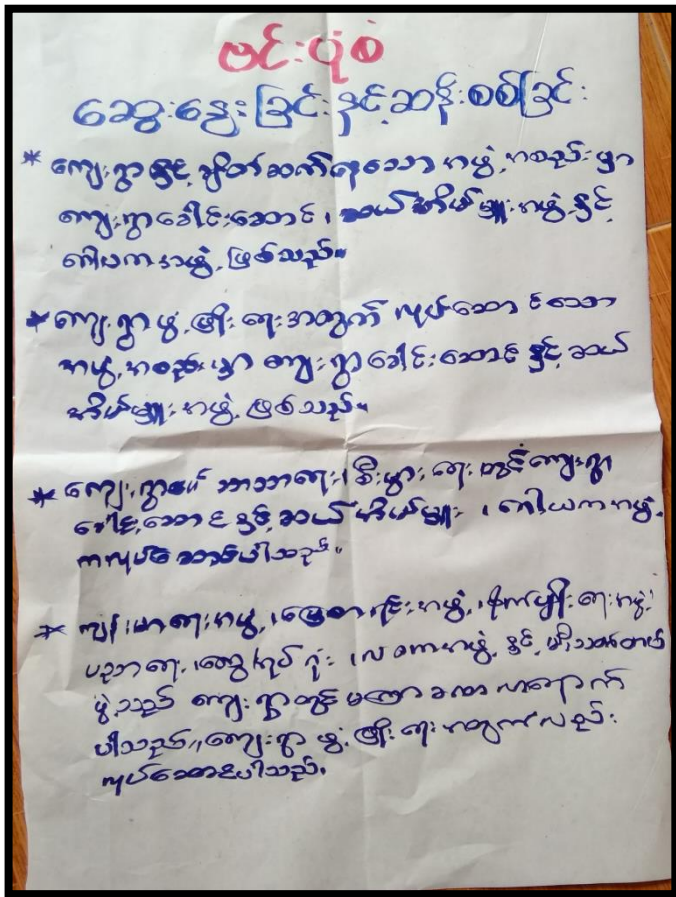 ဗင်းပုံစံ
ဆွေးနွေးခြင်းနှင့်ဆန်းစစ်ခြင်း
* ကျေးရွာနှင့် ချိတ်ဆက်နေသော အဖွဲ့အစည်းမှာ
ကျေးရွာခေါင်းဆောင်၊ ဆယ်အိမ်မှူးအဖွဲ့နှင့်
ဂေါပကအဖွဲ့ ဖြစ်သည်။
* ကျေးရွာဖွံ့ဖြိုးရေးအတွက် လုပ်ဆောင်သော
အဖွဲ့အစည်းမှာ ကျေးရွာခေါင်းဆောင်နှင့် ဆယ်
အိမ်မှူးအဖွဲ့ ဖြစ်သည်။
* ကျေးရွာ၏ ဘာသာရေး၊ စီးပွားရေးတွင် ကျေးရွာ
ခေါင်းဆောင်နှင့် ဆယ်အိမ်မှူး၊ ဂေါပကအဖွဲ့
ကလုပ်ဆောင်ပါသည်။
* ကျန်းမာရေးအဖွဲ့၊ မြေစာရင်းအဖွဲ့၊ စိုက်ပျိုးရေးအဖွဲ့၊
ပညာရေး၊ ထွေ/အုပ် ရုံး၊ လ ဝကအဖွဲ့ နှင့်
ဖွဲ့သည် ကျေးရွာတွင် မကြာခဏ လာရောက်
ပါသည်။ ကျေးရွာ ဖွံ့ဖြိုးရေးအတွက်လည်း
လုပ်ဆောင်ပါသည်။